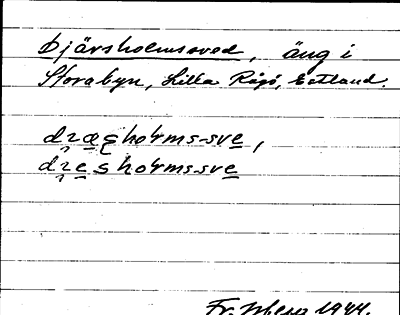 Djärsholmssved, äng i
Storabyn, Lilla Rågö, Estland.
dzæsholms-sve,
dzesholms-sve
1944.